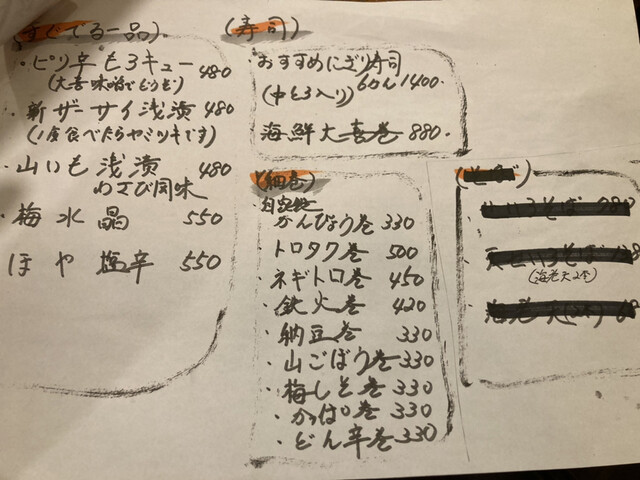 (すぐでる一品)
・ピリ辛もろキュー 480
(大喜味噌でどうぞ)
・新ザーサイ浅漬 480
(1度食べたらヤミツキです)
・山いも浅漬 480
わさび風味
・梅水晶 550
・ほや塩辛 550
(寿司)
・おすすめにぎり寿司
(中とろ入り) 6かん1400.
海鮮大喜巻 880.
(細巻)
・自家製
かんぴょう巻 330
・トロタク巻 500
・ネギトロ巻 450
・鉄火巻 420
・納豆巻 330
・山ごぼう巻 330
・梅しそ巻 330
・かっぱ巻 330
・どん辛巻 330
(海老天2本)